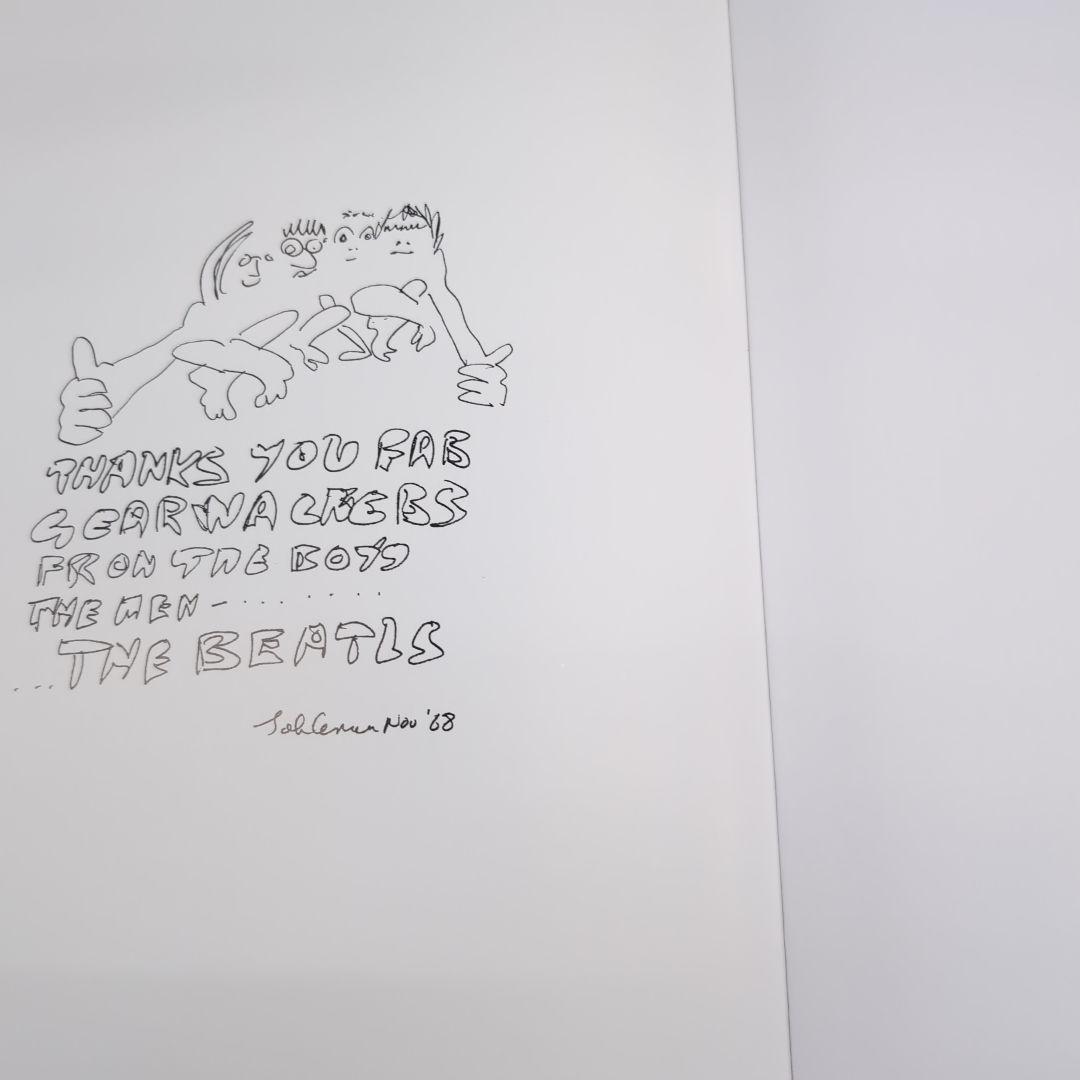 THANKS YOU FAB
GEARWACKEBS
FRON THE BOYS
THE MEN - ... ....
...THE BEATLS
John Lennon Nov '68